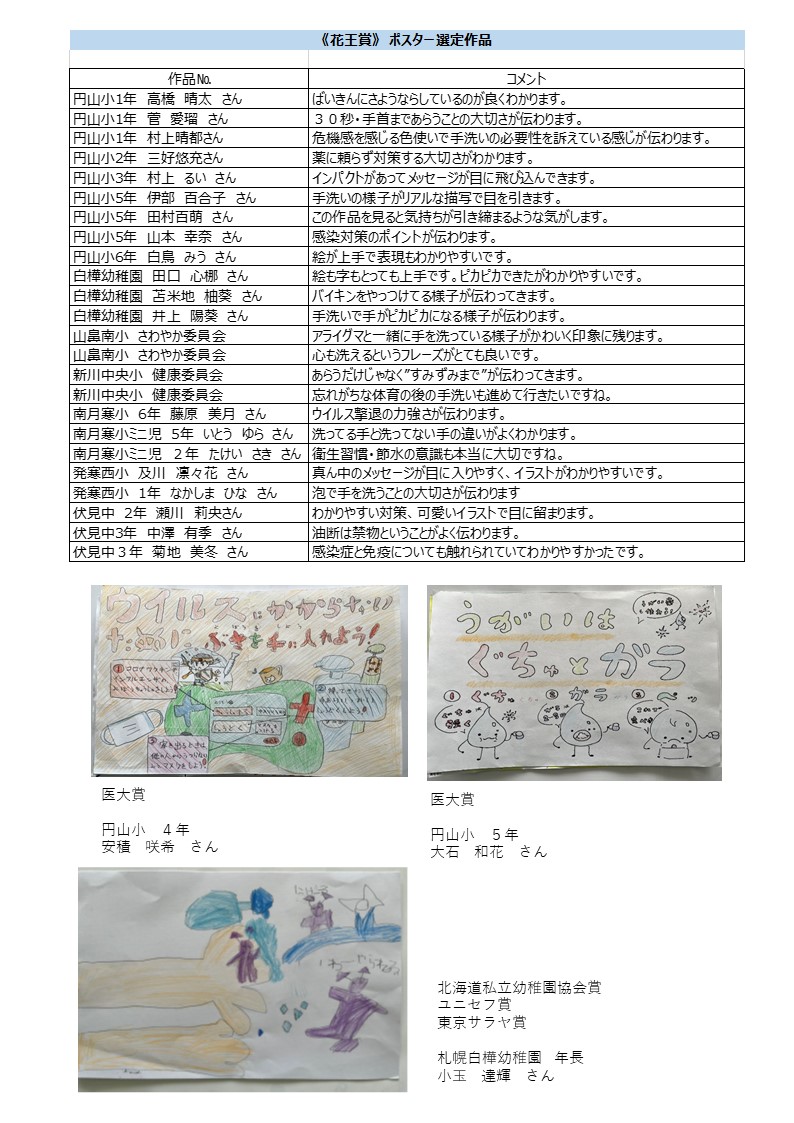 《花王賞》 ポスター選定作品
作品№ コメント
円山小1年 高橋 晴太 さん ばいきんにさようならしているのが良くわかります。
円山小1年 菅 愛瑠 さん ３０秒・手首まであらうことの大切さが伝わります。
円山小1年 村上晴都さん 危機感を感じる色使いで手洗いの必要性を訴えている感じが伝わります。
円山小2年 三好悠充さん 薬に頼らず対策する大切さがわかります。
円山小3年 村上 るい さん インパクトがあってメッセージが目に飛び込んできます。
円山小5年 伊部 百合子 さん 手洗いの様子がリアルな描写で目を引きます。
円山小5年 田村百萌 さん この作品を見ると気持ちが引き締まるような気がします。
円山小5年 山本 幸奈 さん 感染対策のポイントが伝わります。
円山小6年 白鳥 みう さん 絵が上手で表現もわかりやすいです。
白樺幼稚園 田口 心梛 さん 絵も字もとっても上手です。ピカピカできたがわかりやすいです。
白樺幼稚園 苫米地 柚葵 さん バイキンをやっつけてる様子が伝わってきます。
白樺幼稚園 井上 陽葵 さん 手洗いで手がピカピカになる様子が伝わります。
山畠南小 さわやか委員会 アライグマと一緒に手を洗っている様子がかわいく印象に残ります。
山畠南小 さわやか委員会 心も洗えるというフレーズがとても良いです。
新川中央小 健康委員会 あらうだけじゃなく”すみずみまで”が伝わってきます。
新川中央小 健康委員会 忘れがちな体育の後の手洗いも進めて行きたいですね。
南月寒小 6年 藤原 美月 さん ウイルス撃退の力強さが伝わります。
南月寒小ミニ児 5年 いとう ゆら さん 洗ってる手と洗ってない手の違いがよくわかります。
南月寒小ミニ児 ２年 たけい さき さん 衛生習慣・節水の意識も本当に大切ですね。
発寒西小 及川 凛々花 さん 真ん中のメッセージが目に入りやすく、イラストがわかりやすいです。
発寒西小 1年 なかしま ひな さん 泡で手を洗うことの大切さが伝わります
伏見中 2年 瀬川 莉央さん わかりやすい対策、可愛いイラストで目に留まります。
伏見中3年 中澤 有季 さん 油断は禁物ということがよく伝わります。
伏見中３年 菊地 美冬 さん 感染症と免疫についても触れられていてわかりやすかったです。
ウイルスにかからない
ためにぶきを手に入れよう!
うがいは
ぐちゃとガラ
① ぐちゃ ② ガラ ③
医大賞
円山小 ４年
安積 咲希 さん
医大賞
円山小 ５年
大石 和花 さん
北海道私立幼稚園協会賞
ユニセフ賞
東京サラヤ賞
札幌白樺幼稚園 年長
小玉 達輝 さん